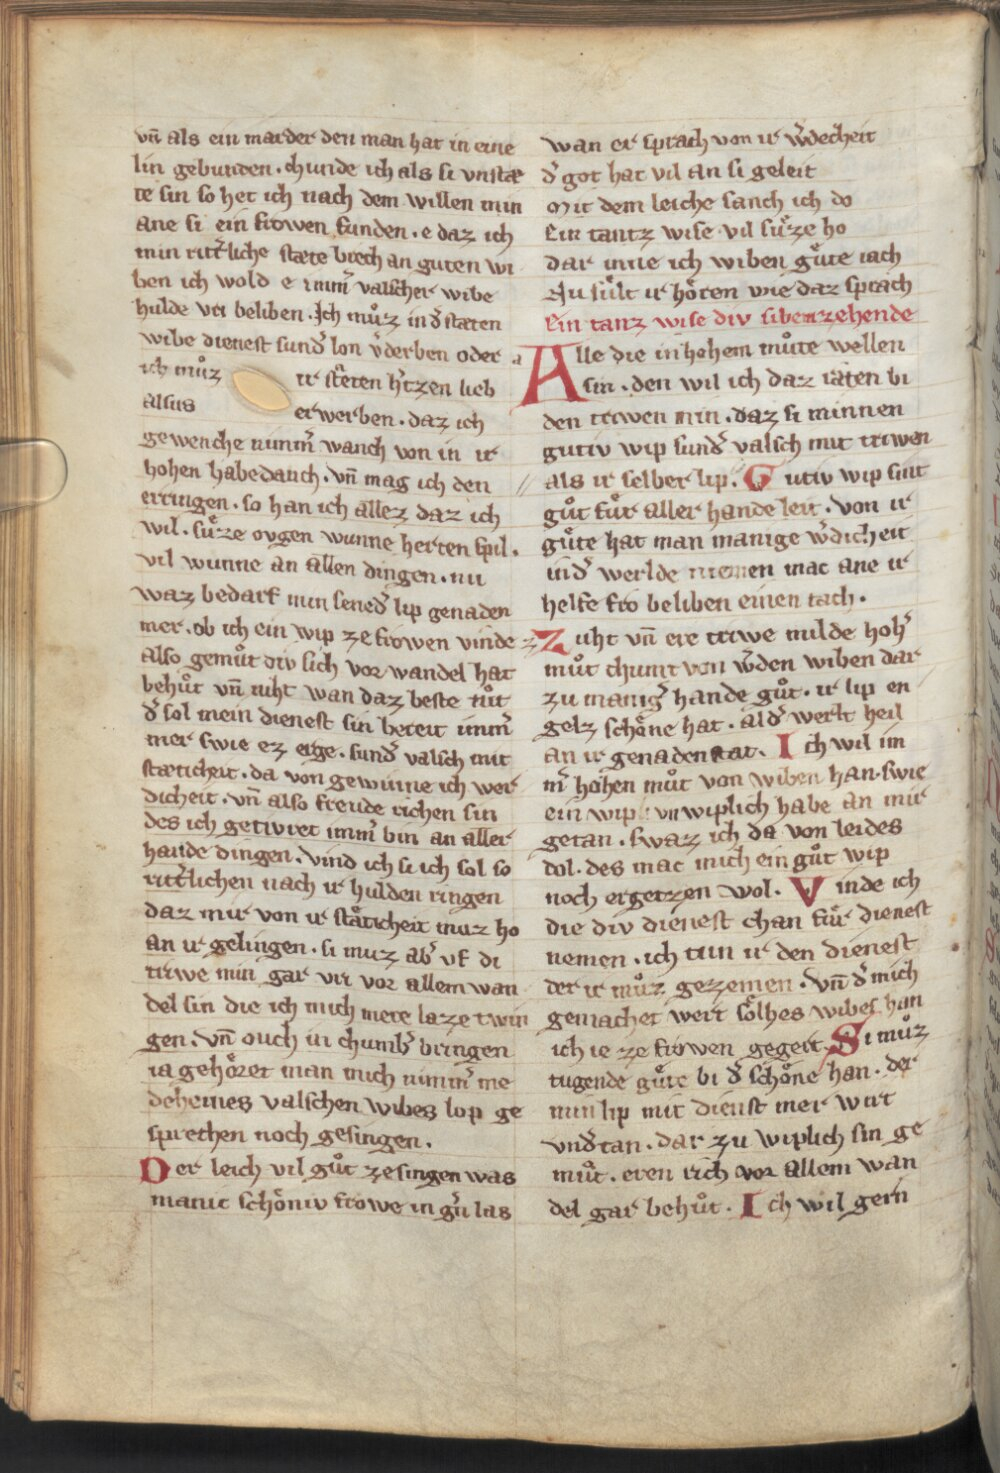 vn̄ als ein marder den man hat in eine
lin gebunden . chunde ich als si vnstæ
te sin so het ich nach dem willen min
ane si ein frowen funden . e daz ich
min ritt̉liche stæte brech an guten wi
ben ich wold e imm̉ valscher wibe
hulde vri beliben . Ich muͦz in d̉ stæten
wibe dienest sund̉ lon v̉derben oder
ich muͦz ir stæten h̉tzen lieb
alsus erwerben . daz ich
gewenche nimm̉ wanch von in ir
hohen habedanch . vn̄ mag ich den
erringen . so han ich allez daz ich
wil . suͤze ovgen wunne herten spil .
vil wunne an allen dingen . nu
waz bedarf min sened̉ lip genaden
mer . ob ich ein wip ze frowen vinde
also gemuͦt div sich vor wandel hat
behuͦt vn̄ niht wan daz beste tuͦt
d̉ sol mein dienest sin bereit imm̉
mer swie ez erge . sund̉ valsch mit
stæticheit . da von gewinne ich wer
dicheit . vn̄ also freude richen sin
des ich getivret imm̉ bin an aller
hande dingen . vind ich si ich sol so
ritt̉lichen nach ir hulden ringen
daz mir von ir stæticheit muz ho
an ir gelingen . si muz ab̉ vf di
triwe min gar vri vor allem wan
del sin die ich mich mere laze twin
gen . vn̄ ouch in chumb̉ bringen
ia gehoͤret man mich nimm̉ me
deheines valschen wibes lop ge
sprechen noch gesingen .
Der leich vil guͦt ze singen was
manic schoͤniv frowe in g̉n las
wan er sprach von ir w̉decheit
d̉ got hat vil an si geleit
Mit dem leiche sanch ich do
Ein tantz wise vil suͤze ho
dar inne ich wiben guͤte iach
Nu suͤlt ir hoͤren wie daz sprach
Ein tanz wise div sibenzehende
Alle die in hohem muͦte wellen
sin . den wil ich daz raten bi
den triwen min . daz si minnen
gutiv wip sund̉ valsch mit triwen
als ir selber lip . Gutiv wip sint
guͦt fuͤr aller hande leit . von ir
guͤte hat man manige w̉dicheit
in d̉ werlde niemen mac ane ir
helfe fro beliben einen tach .
Zuht vn̄ ere triwe milde hoh̉
muͦt chumt von w̉den wiben dar
zu manig̉ hande guͦt . ir lip en
gelz schoͤne hat . al d̉ werlt heil
an ir genaden stat . Ich wil im
m̉ hohen muͦt von wiben han . swie
ein wip vnwiplich habe an mir
getan . swaz ich da von leides
dol . des mac mich ein guͦt wip
noch ergetzen wol . Vinde ich
die div dienest chan fuͤr dienest
nemen . ich tun ir den dienest
der ir muͦz gezemen . vn̄ d̉ mich
gemachet wert soͤlhes wibes han
ich ie ze frowen gegert . Si muͦz
tugende guͤte bi d̉ schoͤne han . der
min lip mit dienst mer wirt
vnd̉tan . dar zu wiplich sin ge
muͦt . eren rich vor allem wan
del gar behuͦt . Ich wil gern